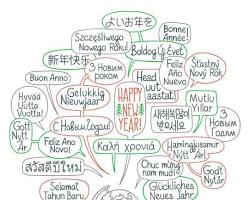 よいお年を
Bonne
Année!
Szczęśliwego
Nowego Roku!
Boldog Új Évet
Šťastný
Nový Rok
新年快乐
З Новим
роком
Feliz
Año
Nuevo
Buon Anno
Head
uut
aastat!
Mutlu
Yıllar
Hyvää
Uutta
Vuotta!
Gelukkig
Nieuwjaar
HAPPY
NEW
YEAR!
새해복많이
받으세요
З Новым
Годам
Gott
Nytt
År
С Новым Годом!
Feliz Ano
Novo!
Καλή χρονιά
Hamingjusamur
Nýtt Ár!
สวัสดีปีใหม่
Chúc mừng
năm mới!
Godt
Nytår
Selamat
Tahun Baru
Glückliches
Neues Jahr